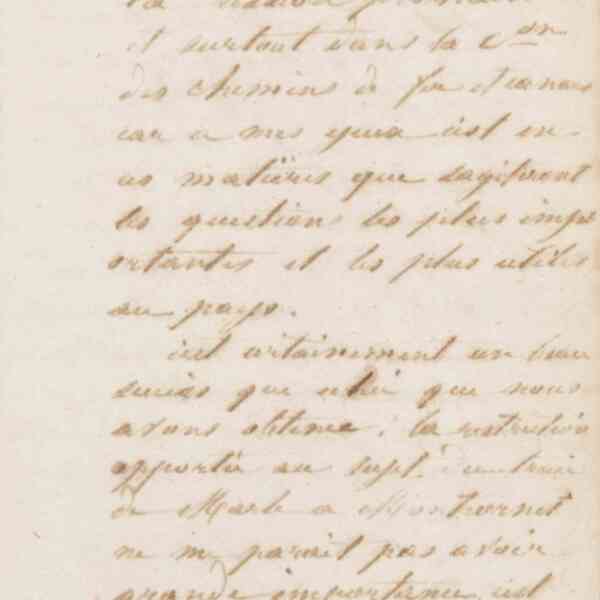 la
et surtout dans la Con
des chemins de fer et canaux
car a mes yeux c'est en
ces matières que s'agiteront
les questions les plus impo
ortantes et les plus utiles
au pays.
c'est certainement un beau
succès que celui que nous
avons obtenu; la restriction
apportée au sujet
de Marle a Montcornet
ne me parait pas avoir
grande importance, c'est